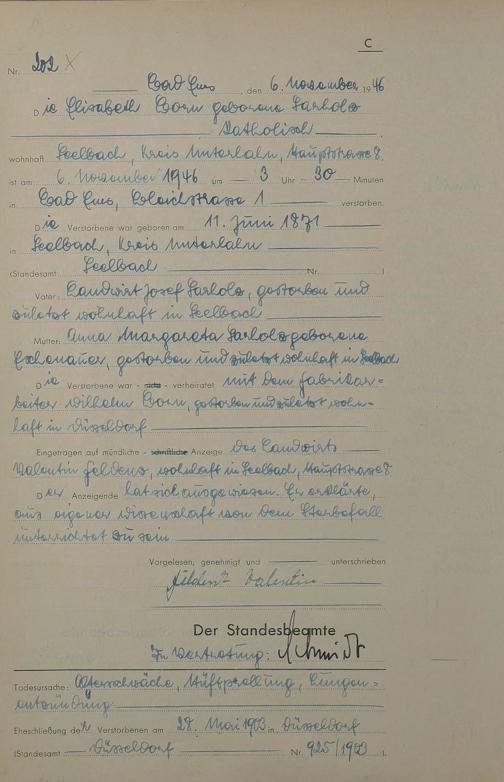 C
Nr. 202
Bad Ems, den 6. November 1946
Die Elisabeth Born geborene Sarholz
Katholisch
wohnhaft Seelbach, Kreis Unterlahn, Hauptstrasse 8
ist am 6. November 1946 um 3 Uhr 30 Minuten
in Bad Ems, Bleichstrasse 1 verstorben.
Die Verstorbene war geboren am 11. Juni 1871
in Seelbach, Kreis Unterlahn
(Standesamt Seelbach Nr. )
Vater: Landwirt Josef Sarholz, gestorben und
zuletzt wohnhaft in Seelbach
Mutter: Anna Margareta Sarholz geborene
Eschenauer, gestorben und zuletzt wohnhaft in Seelbach
Die Verstorbene war - nicht - verheiratet mit dem Fabrikar-
beiter Wilhelm Born, gestorben und zuletzt wohn-
haft in Düsseldorf
Eingetragen auf mündliche - schriftliche - Anzeige des Landwirts
Valentin Feldenz, wohnhaft in Seelbach, Hauptstrasse 8
Der Anzeigende hat sich ausgewiesen. Er erklärte,
aus eigener Wissenschaft von dem Sterbefall
unterrichtet zu sein
Vorgelesen, genehmigt und unterschrieben
Valentin
Der Standesbeamte
In Vertretung: Schmidt
Todesursache: Altersschwäche, Hüftprellung, Lungen-
entzündung
Eheschließung der Verstorbenen am 28. Mai 1903 in Düsseldorf
(Standesamt Düsseldorf Nr. 925/1903 )